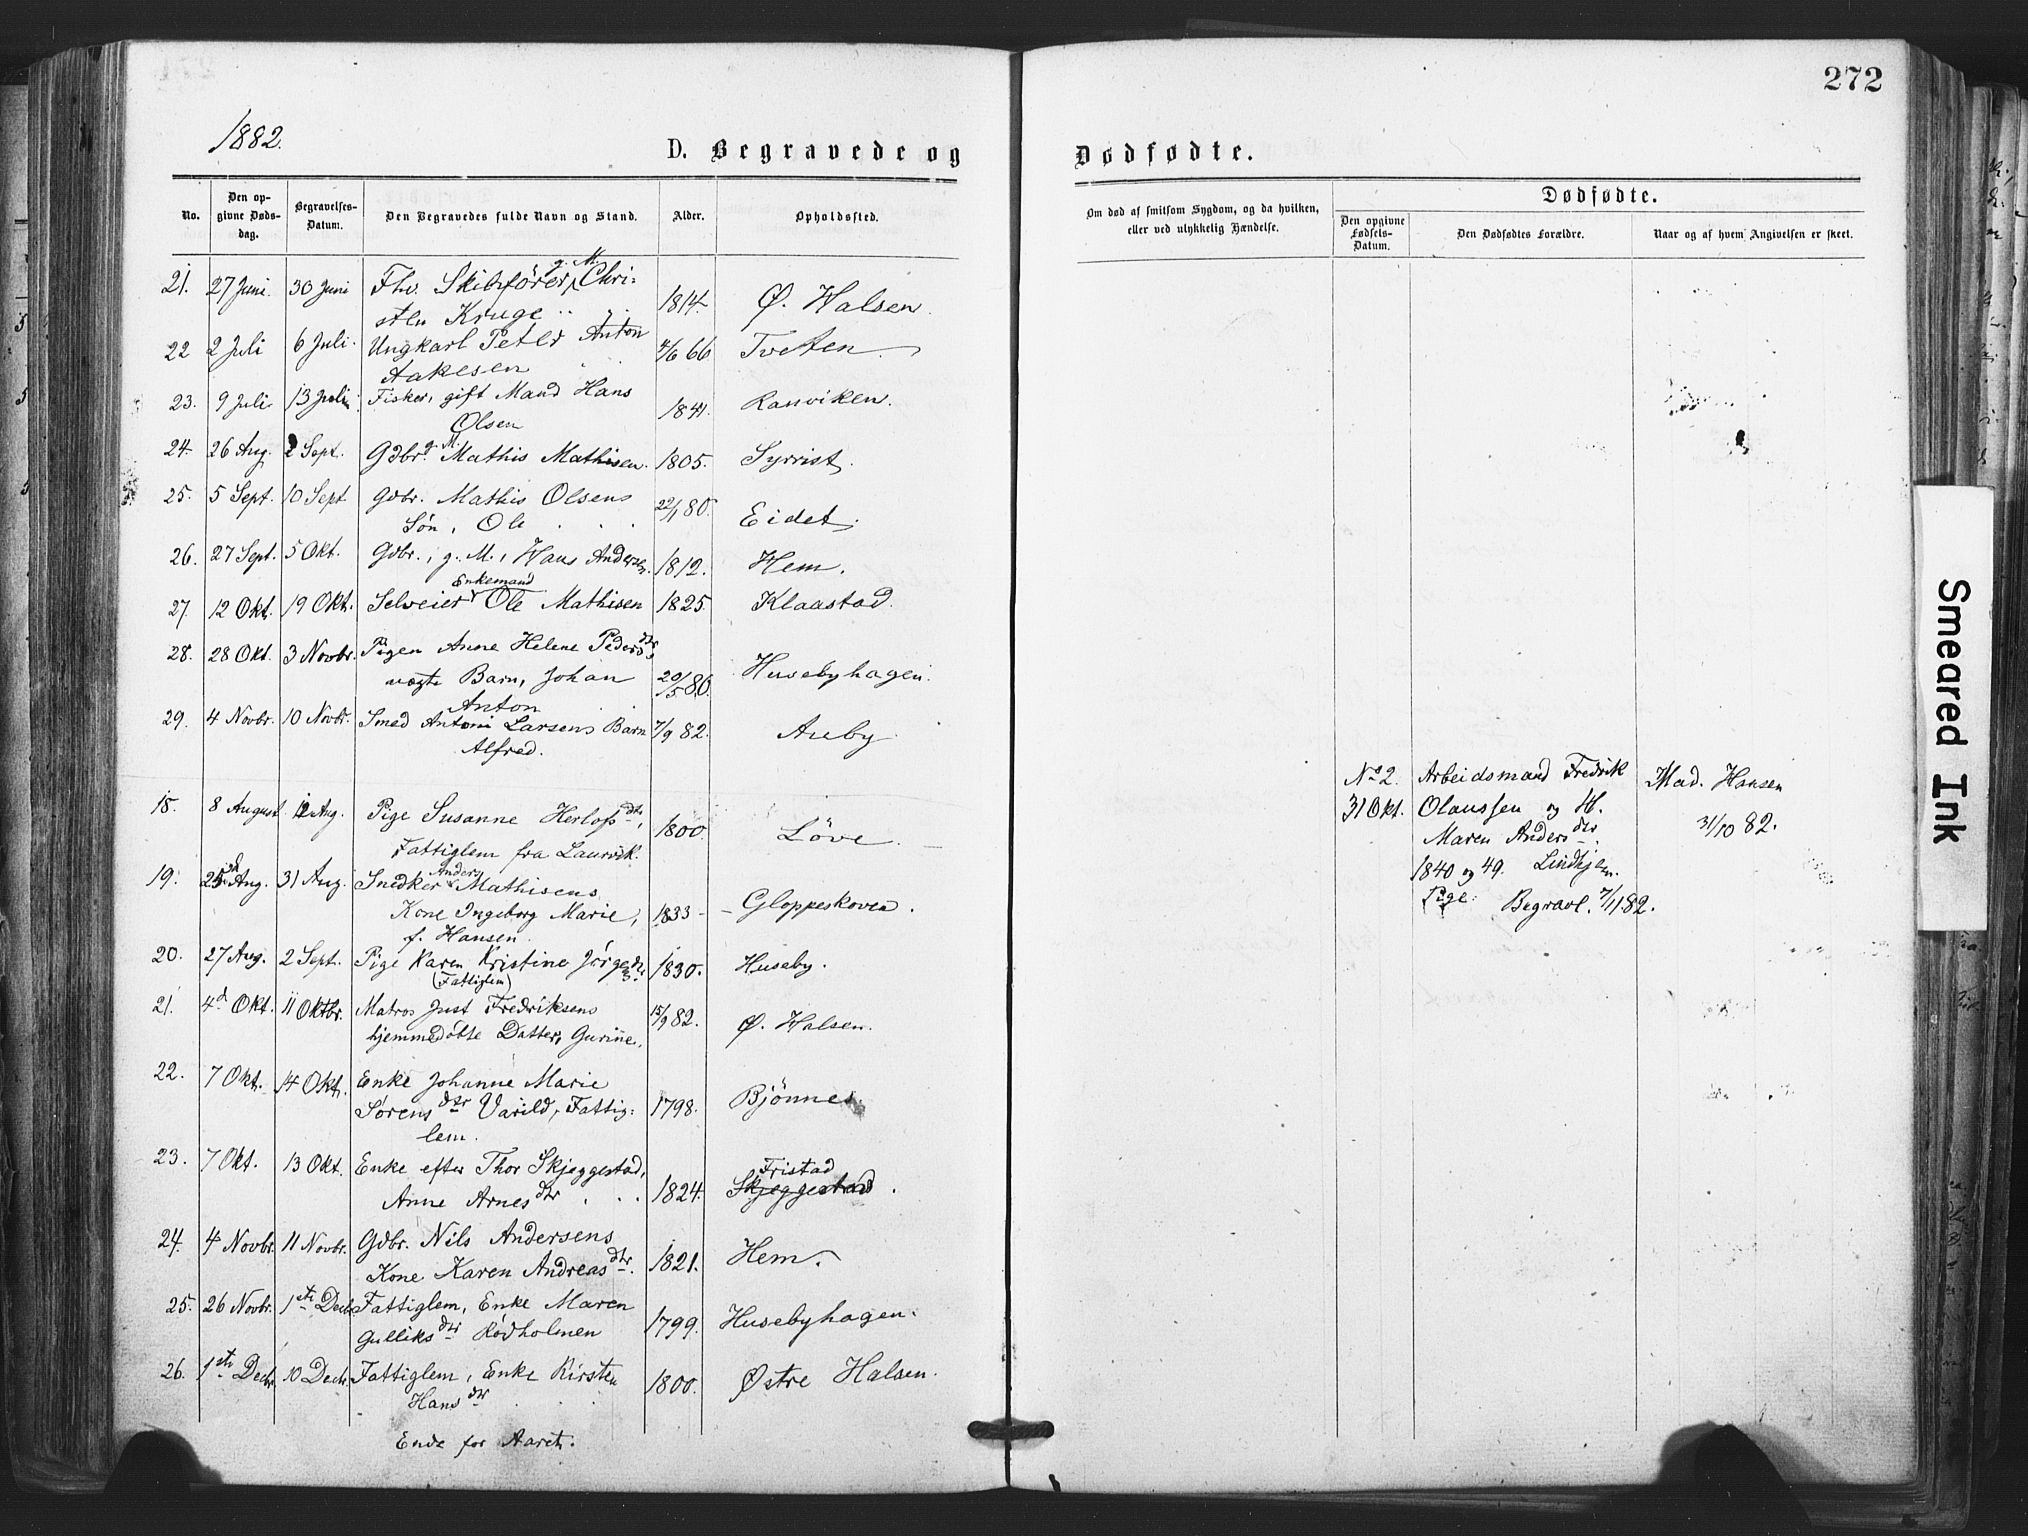 272
1882.
D. Begravede og
Dødfødte.
No.
Den opgivne Dødsdag.
Begravelses-Datum.
Den Begravedes fulde Navn og Stand.
Alder.
Opholdssted.
Om død af smitsom Sygdom, og da hvilken, eller ved ulykkelig Hændelse.
Dødfødte.
Den opgivne Fødsels-Datum.
Den Dødfødtes Forældre.
Naar og af hvem Angivelsen er skeet.
g. M.
21. 27 Juni. 30 Juni Fhv. Skibsfører, Chri-
sten Kruge 1814. Ø. Halsen.
22 2 Juli 6 Juli. Ungkarl Peter Anton
Aakesen 4/6 66 Tveten
23. 9 Juli 13 Juli Fisker, gift Mand Hans
Olsen 1841. Ranviken.
g. M.
24. 26 Aug. 2 Sept. Gdbr. Mathis Mathisen. 1805. Syrrist.
25. 5 Sept. 10 Sept Gdbr. Mathis Olsens
Søn, Ole 22/1 80. Eidet.
26. 27 Sept. 5 Okt. Gdbr., g. M., Hans Andersen. 1812. Hem.
Enkemand
27. 12 Okt. 19 Okt. Selveier Ole Mathisen 1825. Klaastad.
28. 28 Okt. 3 Novbr. Pigen Anne Helene Pedersdtr
uægte Barn, Johan
Anton 20/5 80. Husebyhagen.
29. 4 Novbr. 10 Novbr. Smed Antoni Larsens Barn
Alfred. 7/9 82. Auby.
18. 8 August 12 Aug. Pige Susanne Herlofsdtr,
Fattiglem fra Laurvik. 1800. Løve.
Anders
19. 25 Aug. 31 Aug. Snedker Mathisens
Kone Ingeborg Marie,
f. Hansen. 1833 - Gloppeskoven.
20. 27 Aug. 2 Sept. Pige Karen Kristine Jørgensdtr
(Fattiglem) 1830. Huseby.
21. 4d Okt. 11 Oktbr. Matros Just Fredriksens
hjemmedøbte Datter, Gurine. 15/9 82. Ø. Halsen.
22. 7 Okt. 14 Okt. Enke Johanne Marie
Sørensdtr Varild, Fattig-
lem. 1798. Bjønnes.
23. 7 Okt. 13 Okt. Enke efter Thor Skjeggestad,
Anne Arnesdtr 1824. Fristad
Skjeggestad.
24. 4 Novbr. 11 Novbr. Gdbr. Nils Andersens
Kone Karen Andreasdtr. 1821. Hem.
25. 26 Novbr. 1ste Decb. Fattiglem, Enke Maren
Gulliksdtr Rødholmen 1799. Husebyhagen.
26. 1ste Decbr. 10 Decbr. Fattiglem, Enke Kirsten
Hansdtr 1800. Østre Halsen.
Ende for Aaret.
No 2. Arbeidsmand Fredrik Mad. Hansen
31 Okt. Olaussen og H.
Maren Andersdtr. 31/10 82.
1840 og 49. Lindhjem.
Pige: Begravl. 7/11 82.
Smeared Ink